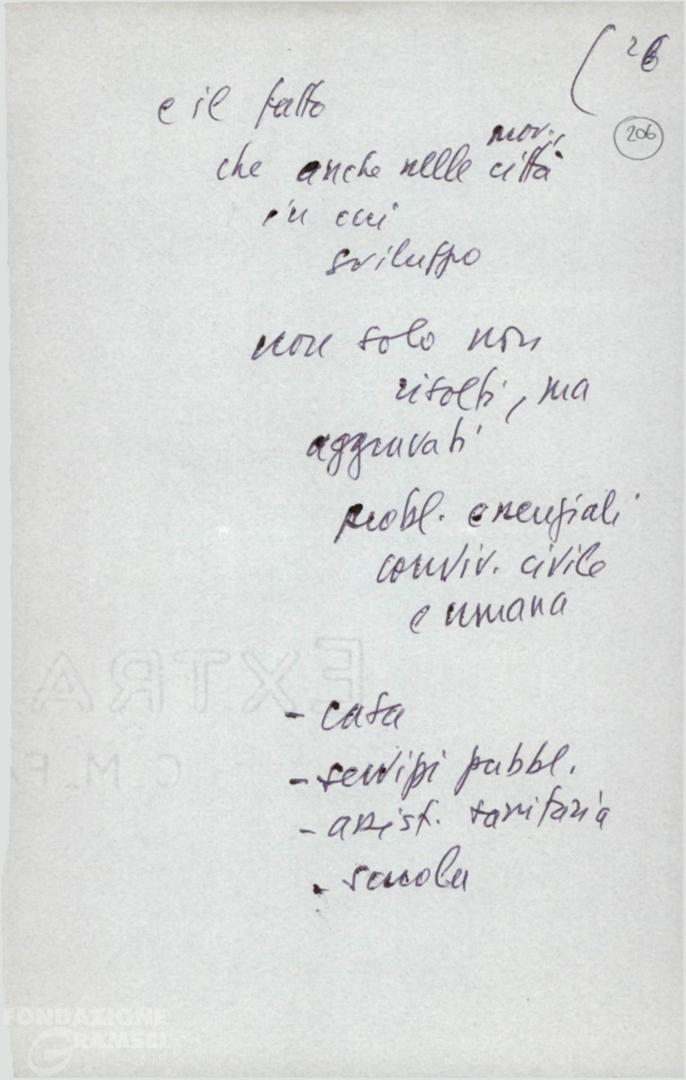 ( 26
206
e il fatto
che anche nelle città
in cui
sviluppo
non solo non
risolti, ma
aggravati
probl. essenziali
conviv. civile
e umana
EXTRA
- casa
- servizi pubbl.
- assist. sanitaria
- scuola
FONDAZIONE
GRAMSCI